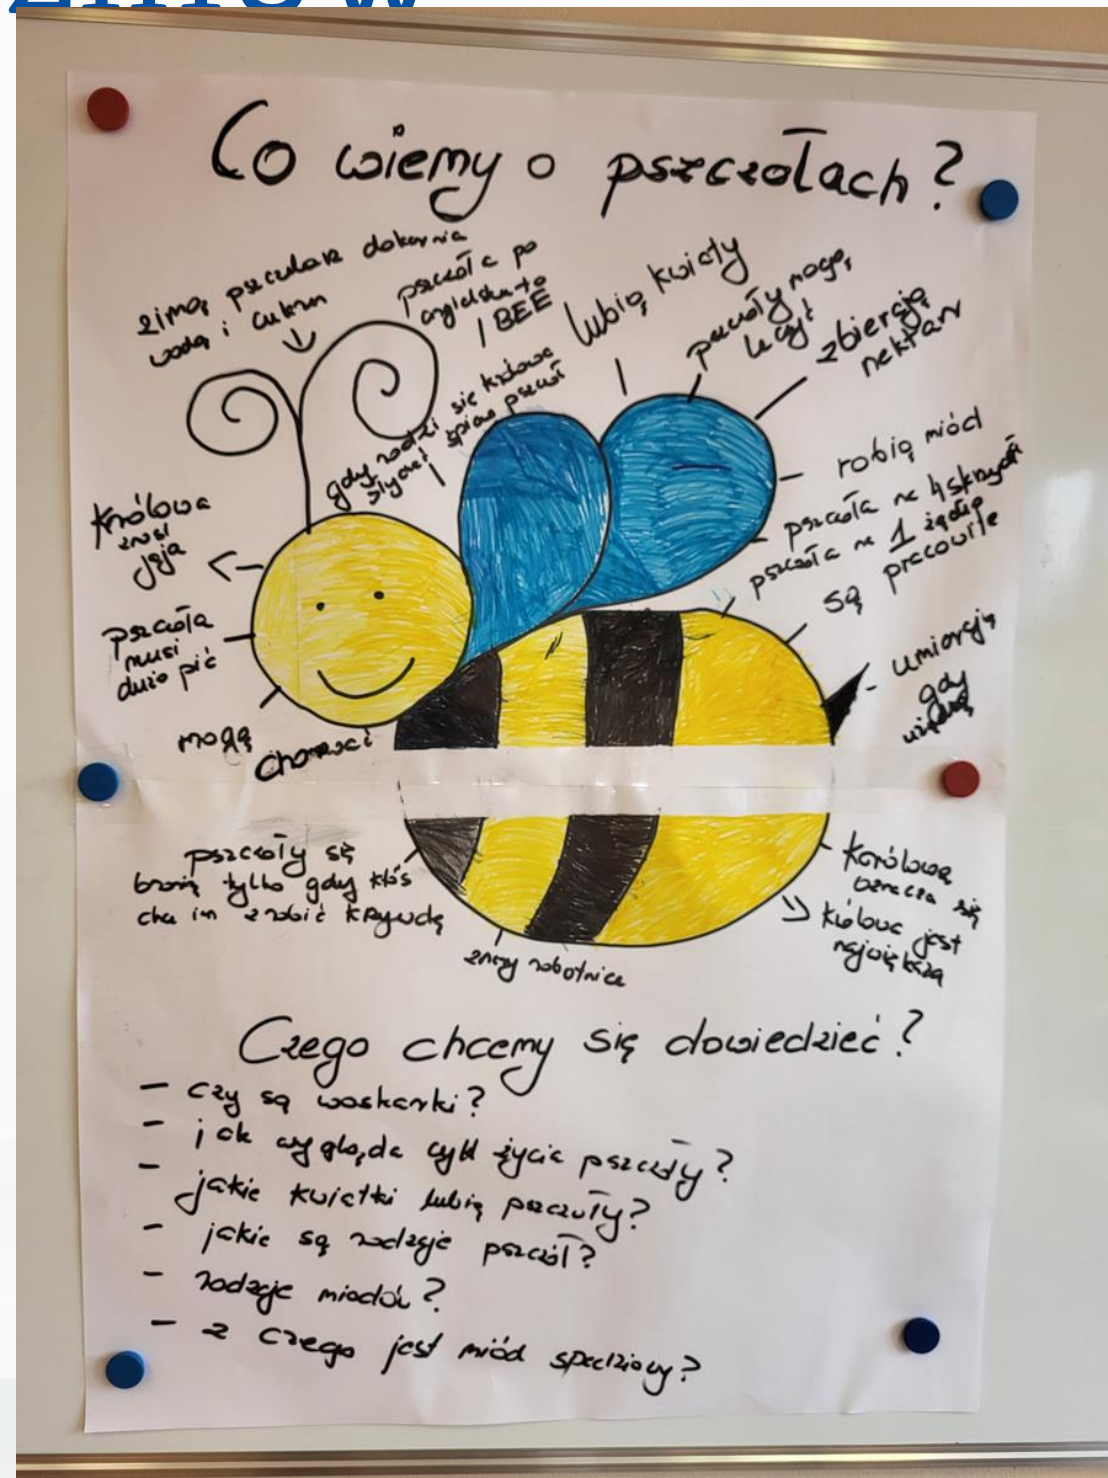 Co wiemy o pszczołach?
zimą pszczelarz dokarmia
wodą i cukrem
pszczoła po
angielsku to
BEE
gdy rodzi się królowa
słychać śpiew pszczół
lubią kwiaty
pszczoły mogą
leczyć
zbierają
nektar
robią miód
pszczoła ma 4 skrzydła
pszczoła ma 1 żądło
są pracowite
umierają
gdy
użądlą
królowa
znosi
jaja
pszczoła
musi
dużo pić
mogą
chorować
pszczoły się
bronią tylko gdy ktoś
chce im zrobić krzywdę
robotnice
królowa
oznacza się
królowa jest
największa
Czego chcemy się dowiedzieć?
- czy są woskarki?
- jak wygląda cykl życia pszczoły?
- jakie kwiatki lubią pszczuły?
- jakie są rodzaje pszczół?
- rodzaje miodów?
- z czego jest miód spadziowy?